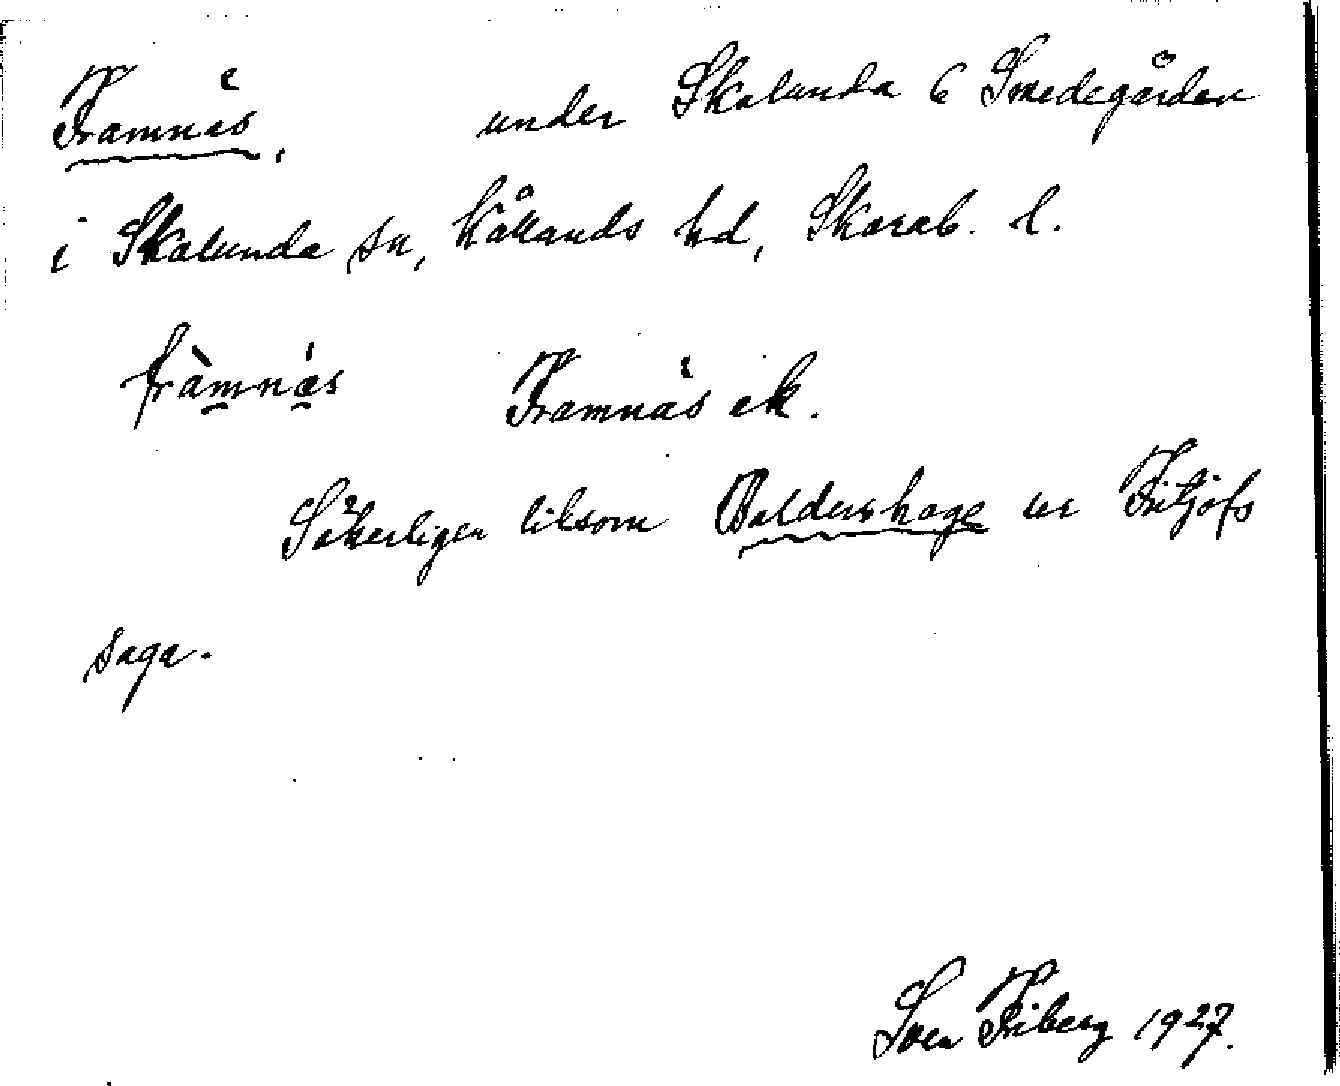 Framnäs, under Skalunda 6 Smedegården
i Skalunda sn, Kållands hd, Skarab. l.
fràmnäs Framnäs ek.
Säkerligen liksom Baldershage ur Fritjofs
saga.
Sven Friberg 1927.